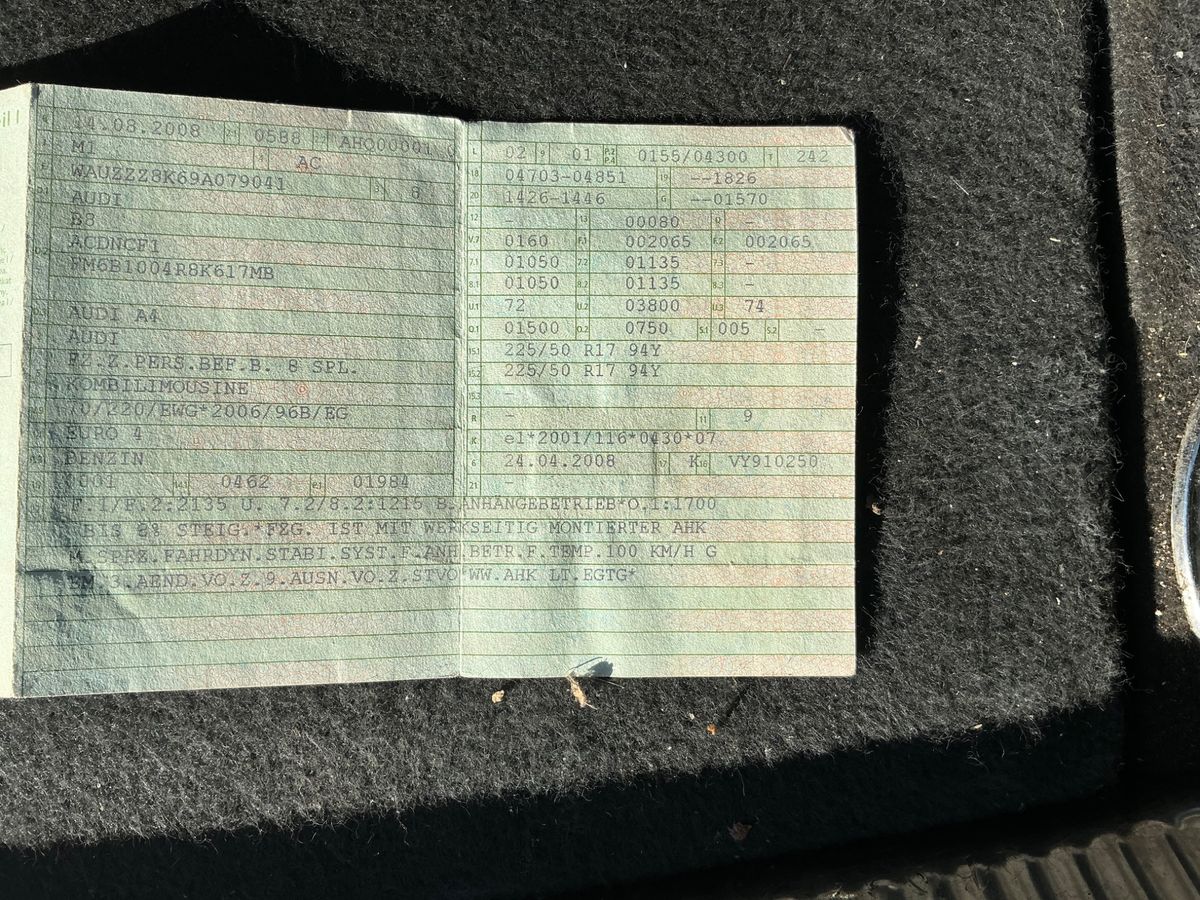 14.08.2008 0588 AHQ00001
M1 AC
WAUZZZ8K69A079041 8
AUDI
B8
ACDNCF1
FM6B1004R8K617MB
AUDI A4
AUDI
FZ.Z.PERS.BEF.B. 8 SPL.
KOMBILIMOUSINE
70/220/EWG*2006/96B/EG
EURO 4
BENZIN
0001 0462 01984
L 02 9 01 P.2 P.4 0155/04300 T 242
18 04703-04851 19 --1826
20 1426-1446 G --01570
12 - 13 00080 Q -
V.7 0160 F.1 002065 F.2 002065
7.1 01050 7.2 01135 7.3 -
8.1 01050 8.2 01135 8.3 -
U.1 72 U.2 03800 U.3 74
O.1 01500 O.2 0750 S.1 005 S.2 -
15.1 225/50 R17 94Y
15.2 225/50 R17 94Y
15.3 -
R - 11 9
K e1*2001/116*0430*07
6 24.04.2008 17 K 16 VY910250
21 -
F.1/F.2:2135 U. 7.2/8.2:1215 B.ANHÄNGEBETRIEB*O.1:1700
BIS 8% STEIG.*FZG. IST MIT WERKSEITIG MONTIERTER AHK
M.SPEZ.FAHRDYN.STABI.SYST.F.ANH.BETR.F.TEMP.100 KM/H G
EM.3.AEND.VO.Z.9.AUSN.VO.Z.STVO*WW.AHK LT.EGTG*